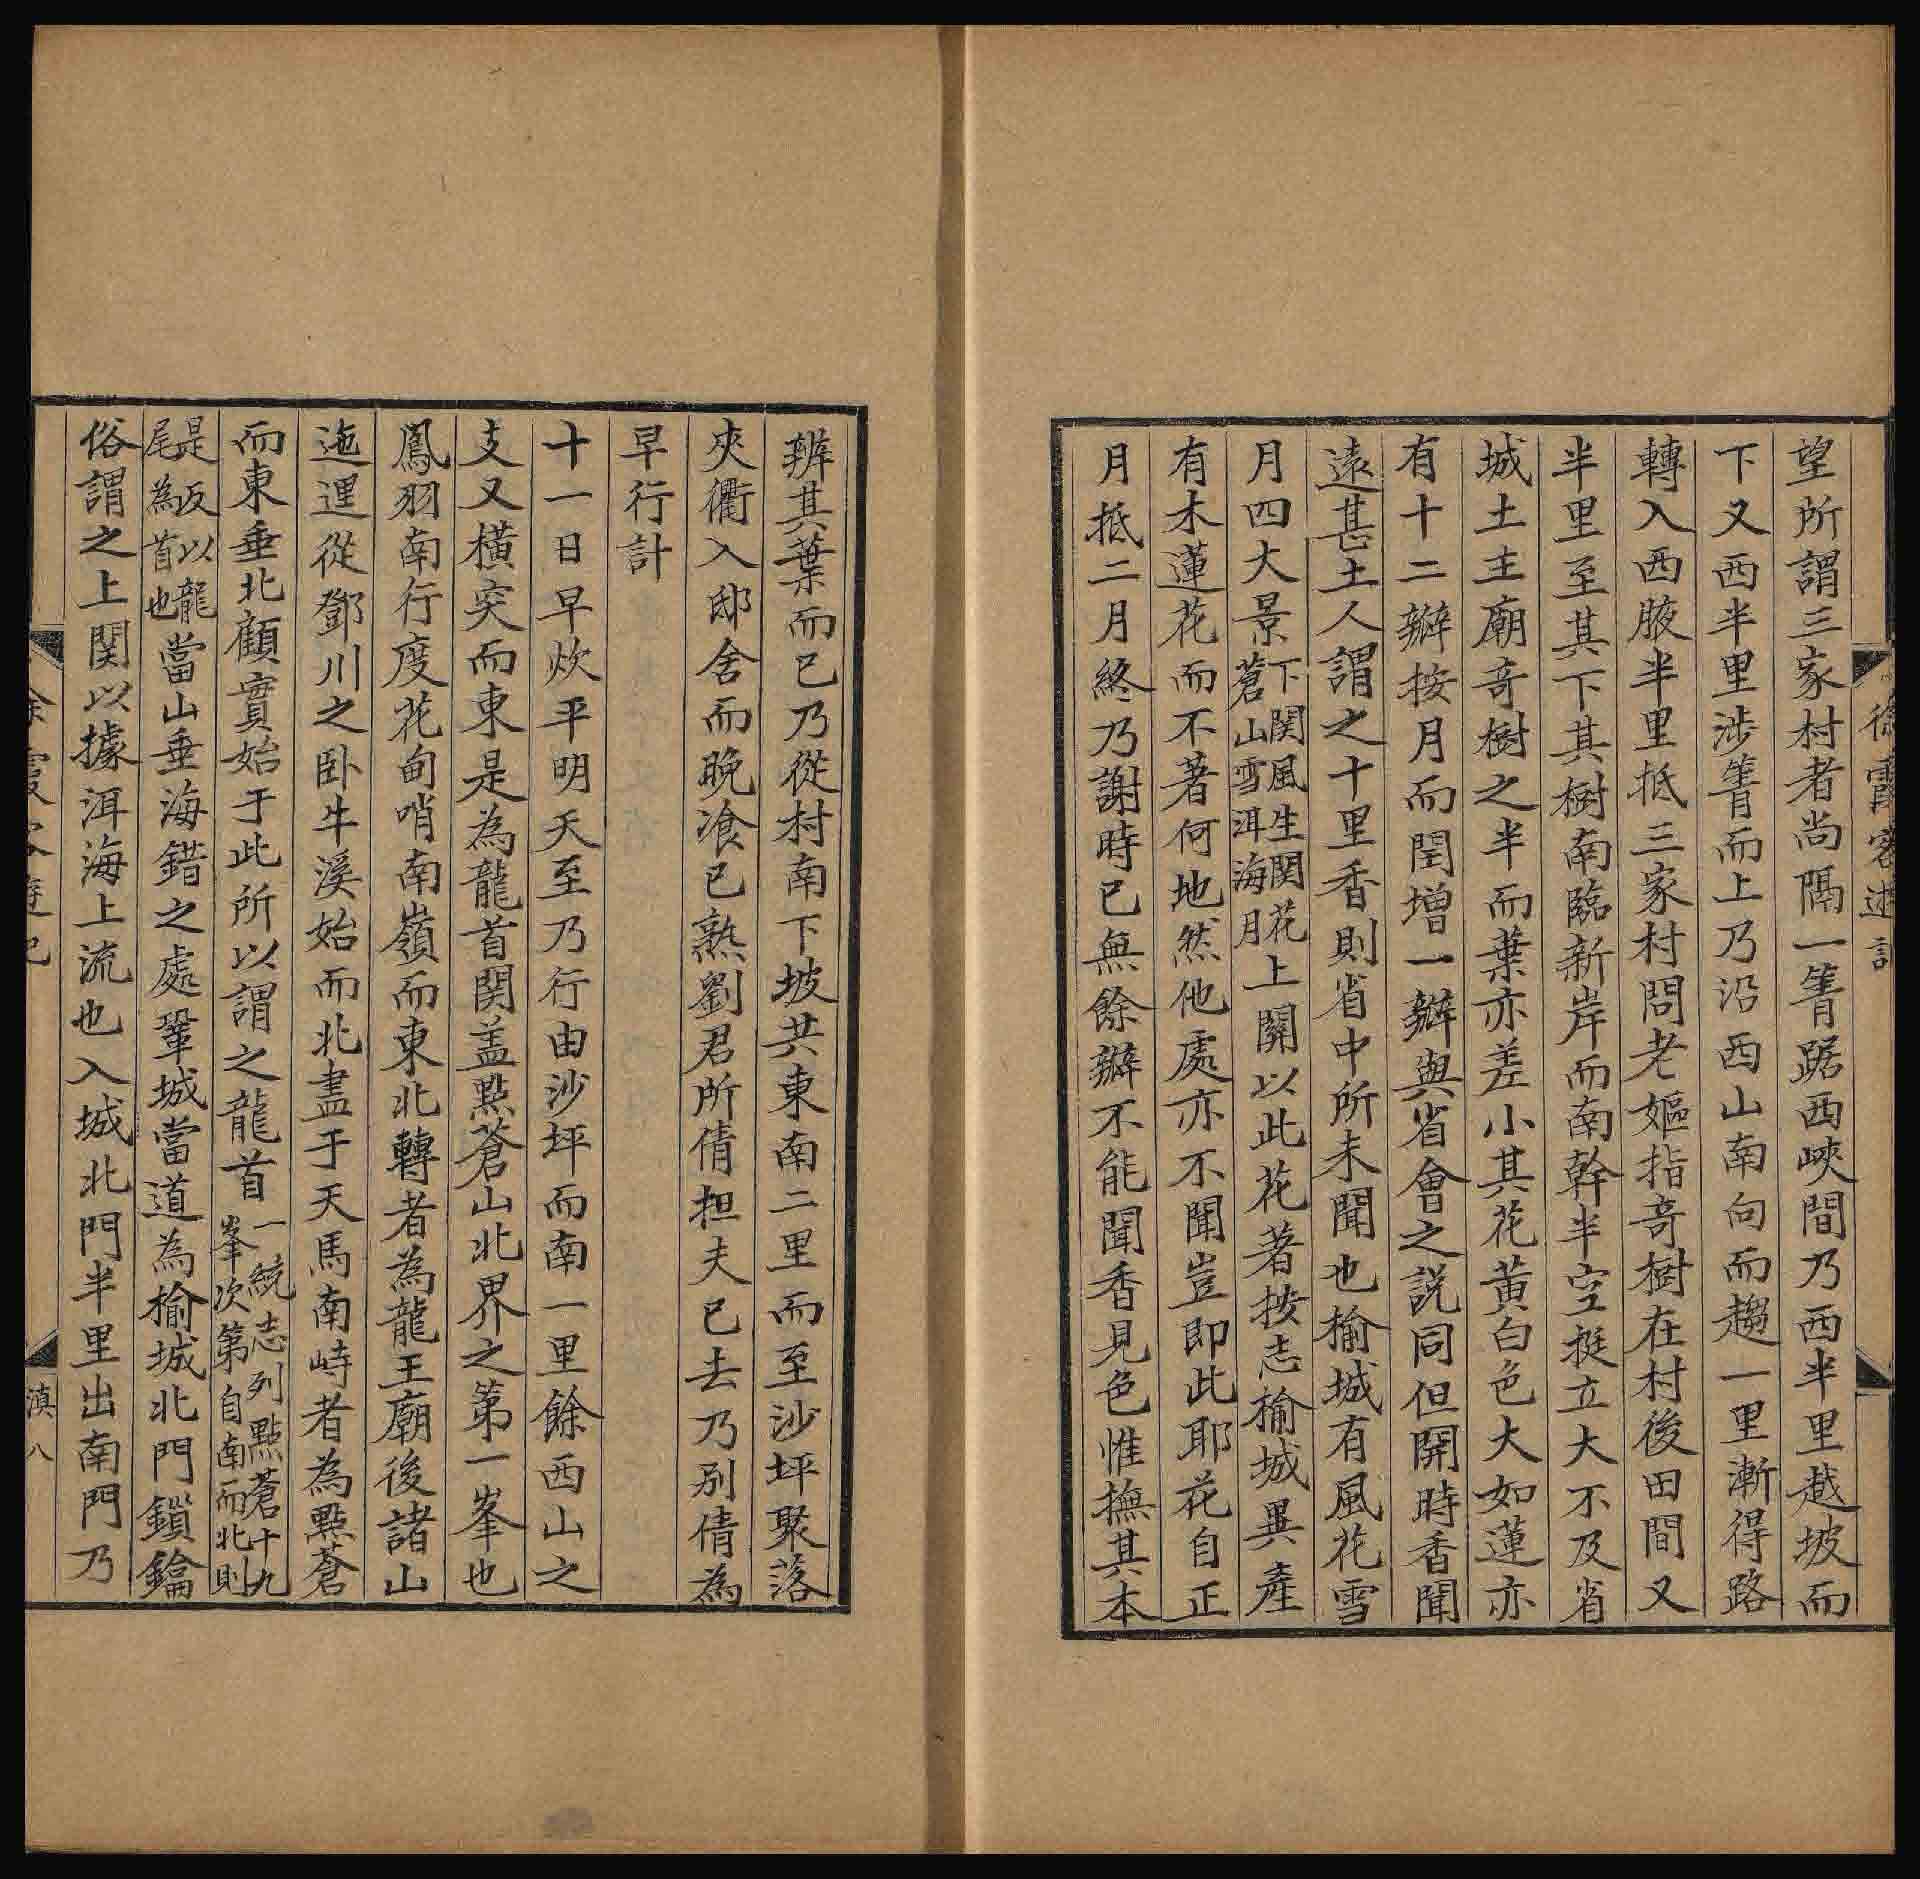 徐霞客遊記
望所謂三家村者尚隔一箐踞西峽間乃西半里越坡而
下又西半里涉箐而上乃沿西山南向而趨一里漸得路
轉入西腋半里抵三家村問老嫗指奇樹在村後田間又
半里至其下其樹南臨新岸而南幹半空挺立大不及省
城土主廟奇樹之半而葉亦差小其花黄白色大如蓮亦
有十二瓣按月而閏增一瓣與省會之説同但開時香聞
遠甚土人謂之十里香則省中所未聞也榆城有風花雪
月四大景下関風生関花蒼山雪洱海月上關以此花著按志榆城異產
有木蓮花而不著何地然他處亦不聞豈即此耶花自正
月抵二月終乃謝時已無餘瓣不能聞香見色惟撫其本
辨其葉而已乃從村南下坡共東南二里而至沙坪聚落
夾衢入邸舍而晚飡已熟劉君所倩担夫已去乃别倩為
早行計
十一日早炊平明天至乃行由沙坪而南一里餘西山之
支又橫突而東是為龍首関盖點蒼山北界之第一峯也
鳳羽南行度花甸哨南嶺而東北轉者為龍王廟後諸山
迤逦從鄧川之卧牛溪始而北盡于天馬南峙者為點蒼
而東垂北顧實始于此所以謂之龍首一統志列點蒼十九峯次第自南而北則
是反以龍尾為首也當山垂海錯之處鞏城當道為榆城北門鎖鑰
俗謂之上関以據洱海上流也入城北門半里出南門乃
滇八